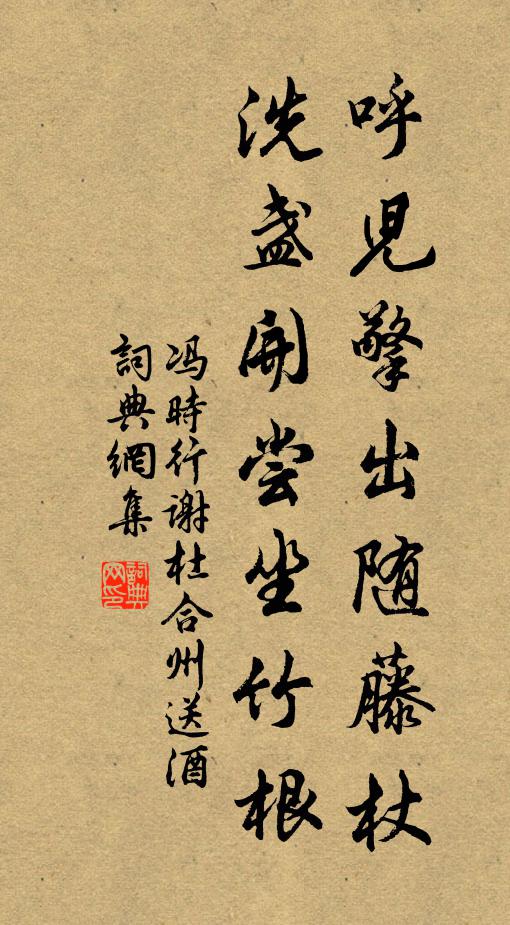 呼児擎出随藤杖
洗盏開尝坐竹根
冯時行谢杜合州送酒
詞典網集
詞典网印